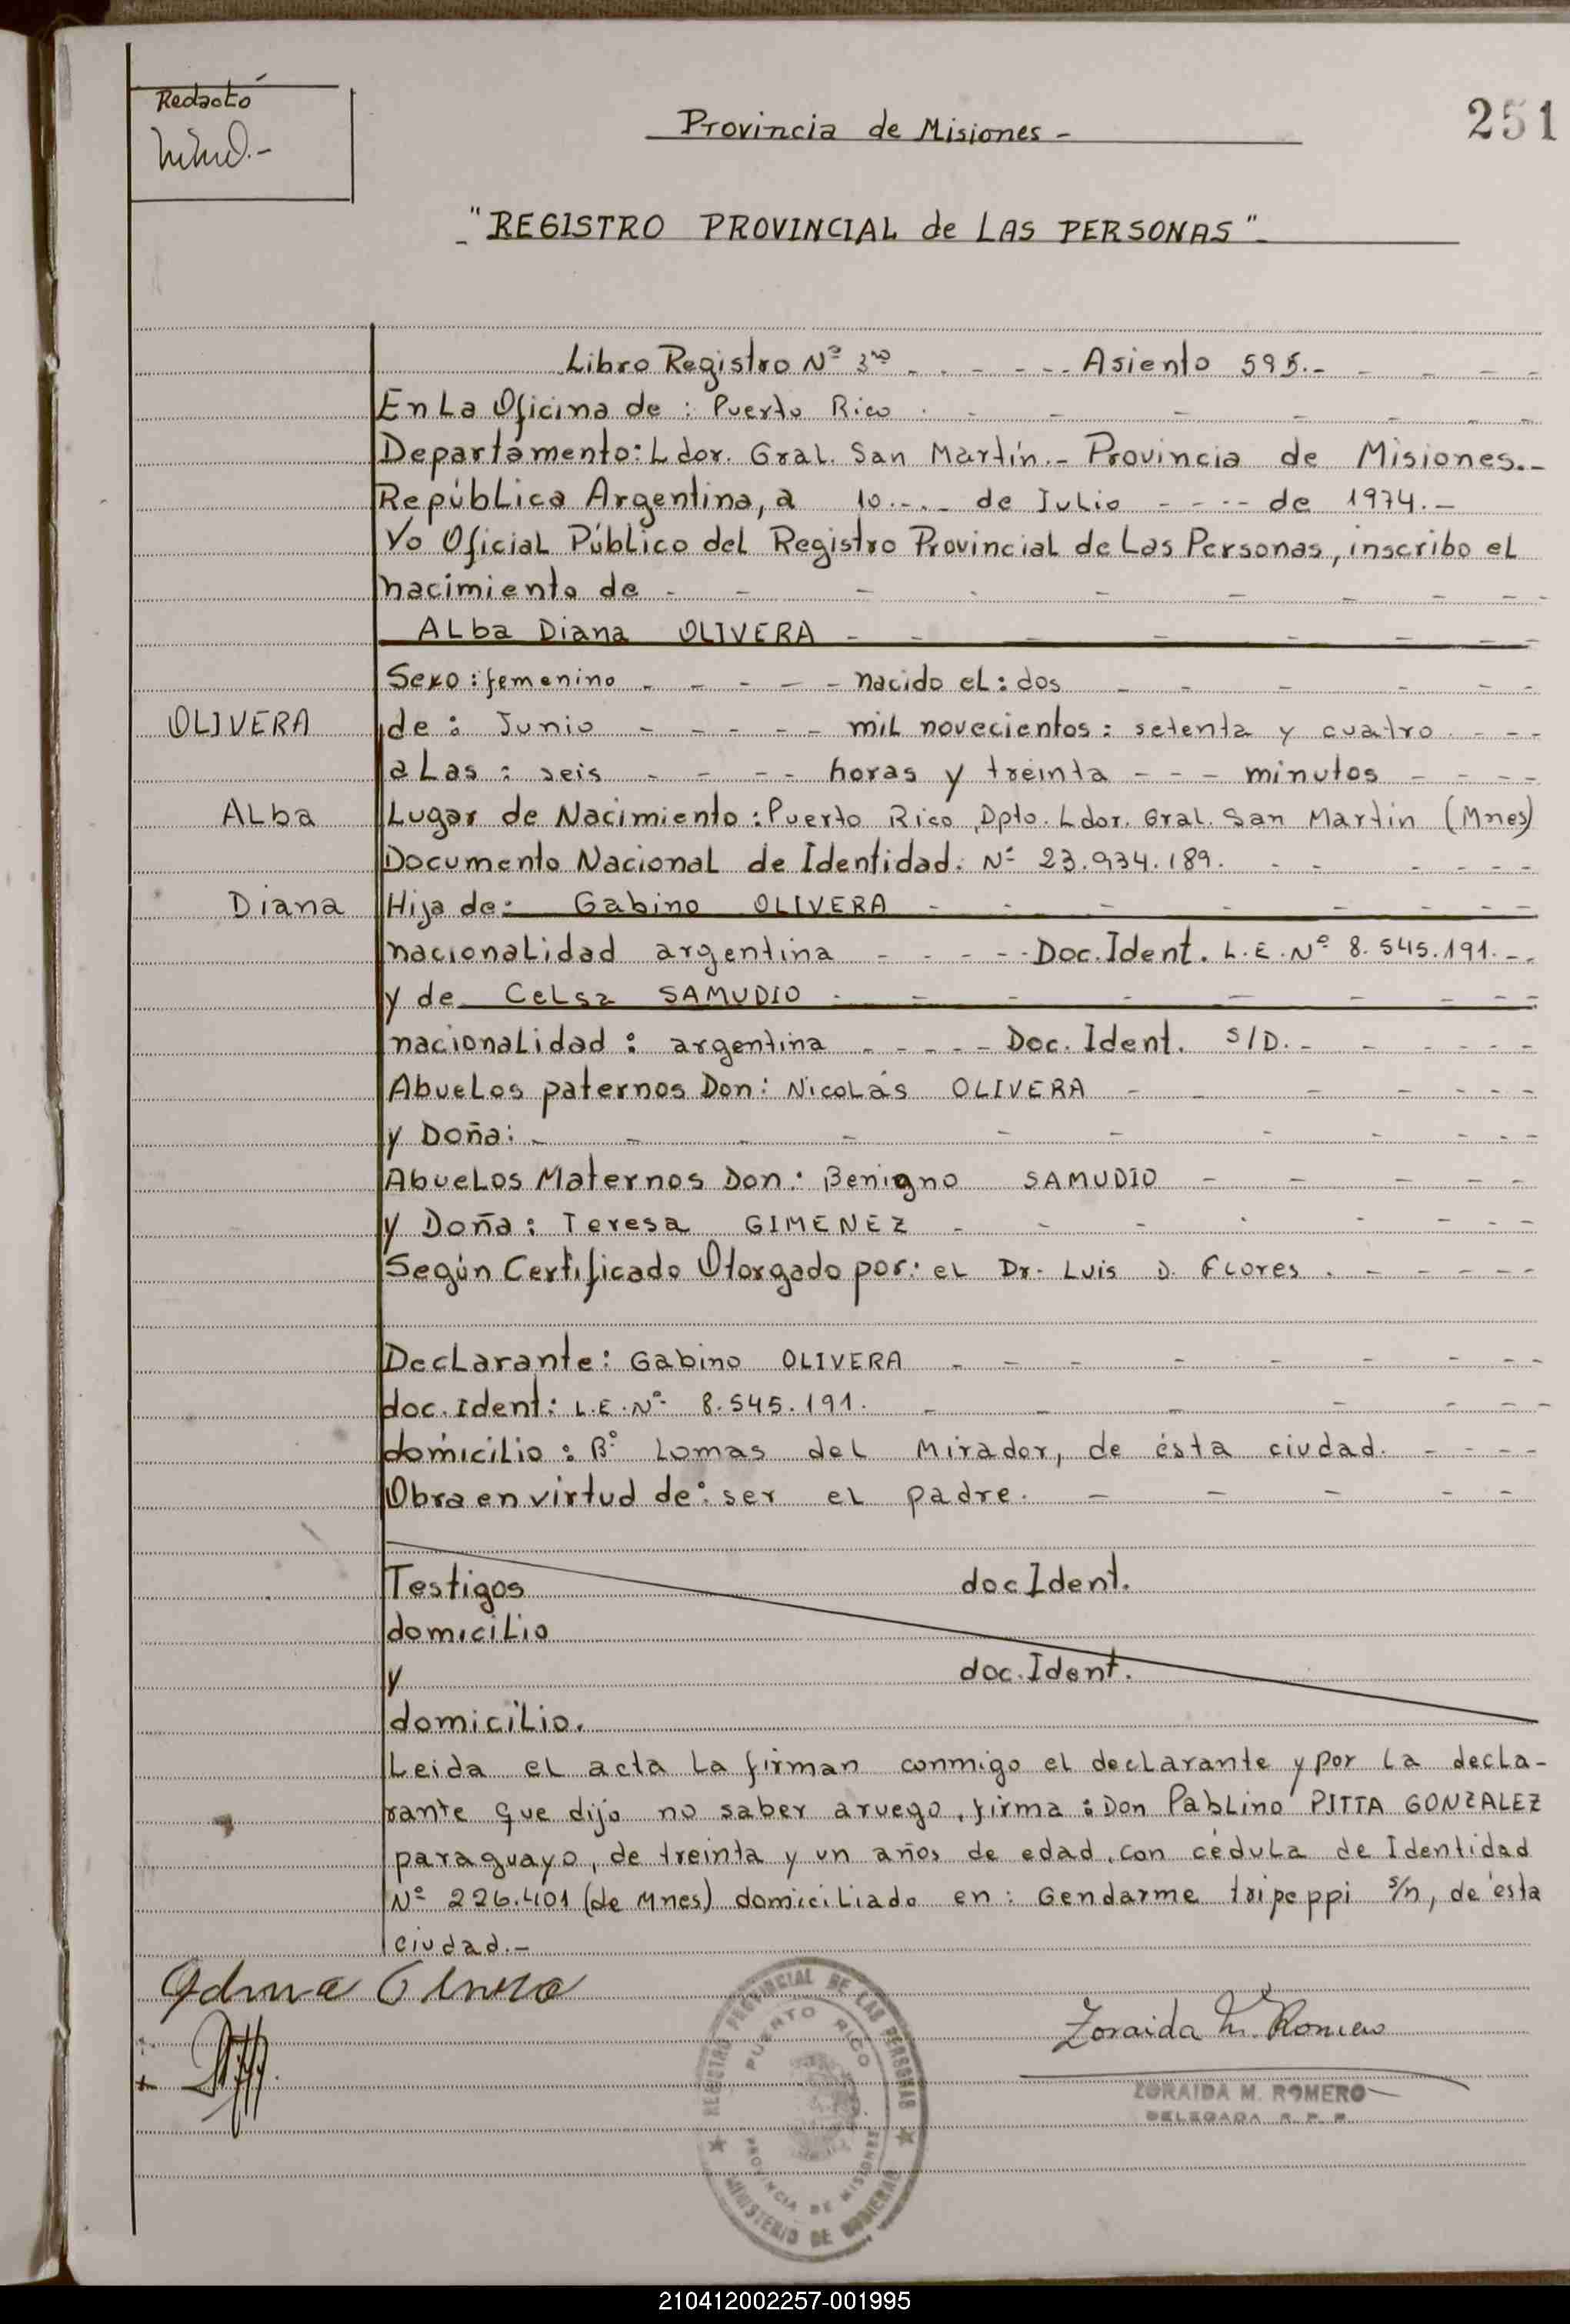 Redactó
251
Provincia de Misiones -
"REGISTRO PROVINCIAL de LAS PERSONAS"
Libro Registro Nº 3ro - - - - - Asiento 595.- - - - -
En La Oficina de : Puerto Rico
Departamento: Ldor. Gral. San Martín.- Provincia de Misiones.-
República Argentina, a 10.-.- de Julio - - - - de 1974.-
Yo Oficial Público del Registro Provincial de Las Personas, inscribo el
nacimiento de - - - - - - - - -
ALba Diana OLIVERA - - - - - - - -
Sexo : femenino - - - - - nacido el : dos - - - - - -
OLIVERA
de : Junio - - - - - mil novecientos : setenta y cuatro - - -
a Las : seis - - - - horas y treinta - - - minutos - - - -
ALba
Lugar de Nacimiento : Puerto Rico, Dpto. Ldor. Gral. San Martin (Mnes)
Documento Nacional de Identidad. Nº 23.934.189. - - - - - -
Diana
Hija de: Gabino OLIVERA - - - - - - - -
nacionalidad argentina - - - - - Doc. Ident. L.E. Nº 8.545.191.- -
y de CeLsa SAMUDIO - - - - - - - -
nacionalidad : argentina - - - - - Doc. Ident. S/D. - - - - - -
Abuelos paternos Don : Nicolás OLIVERA - - - - - - -
y Doña: - - - - - - - - - - -
Abuelos Maternos Don : Benigno SAMUDIO - - - - -
y Doña : Teresa GIMENEZ - - - - - - - -
Según Certificado Otorgado por : el Dr. Luis D. Flores . - - - - -
Declarante : Gabino OLIVERA - - - - - - - - -
doc. Ident : L.E. Nº 8.545.191. - - - - - - -
domicilio : Bº Lomas del Mirador, de ésta ciudad. - - - -
Obra en virtud de : ser el padre. - - - - -
Testigos doc Ident.
domicilio
y doc. Ident.
domicilio.
Leida el acta la firman conmigo el declarante y por la decla-
rante que dijo no saber aruego, firma : Don Pablino PITTA GONZALEZ
paraguayo, de treinta y un años de edad, con cédula de Identidad
Nº 226.401 (de Mnes) domiciliado en : Gendarme tripeppi s/n, de ésta
ciudad.-
REGISTRO PROVINCIAL DE LAS PERSONAS
PUERTO RICO
PROVINCIA DE MISIONES
MINISTERIO DE GOBIERNO
Zoraida M. Romero
ZORAIDA M. ROMERO
DELEGADA R. P. P.
210412002257-001995